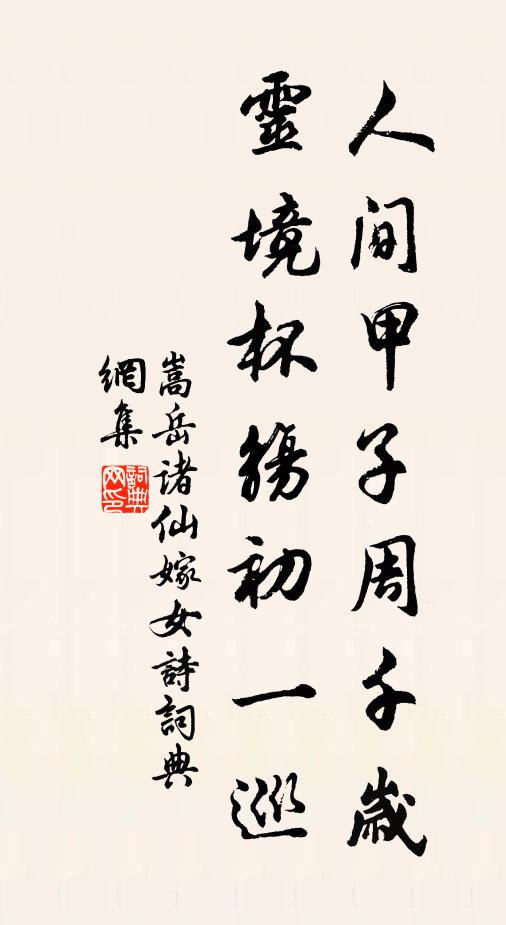 人間甲子周千歲
靈境杯觴初一巡
嵩岳諸仙嫁女詩詞典
網集
詞典网印